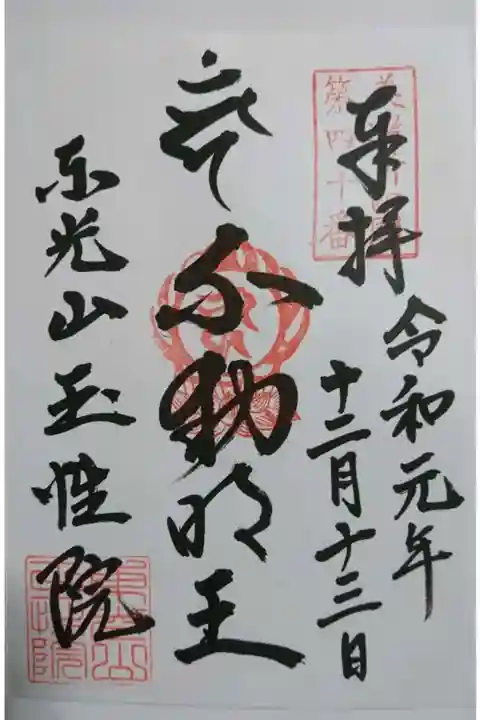 奉拝
令和元年
十二月十三日
不動明王
東光山玉性院
第四十番